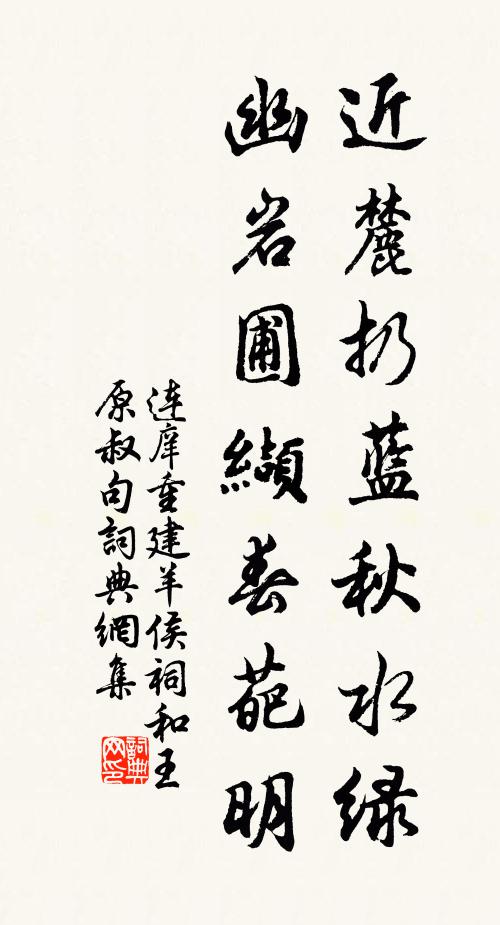 近麓扔蓝秋水绿
幽岩圃纈春葩明
連庠重建羊侯祠和王
原叔句詞典網集
詞典網印